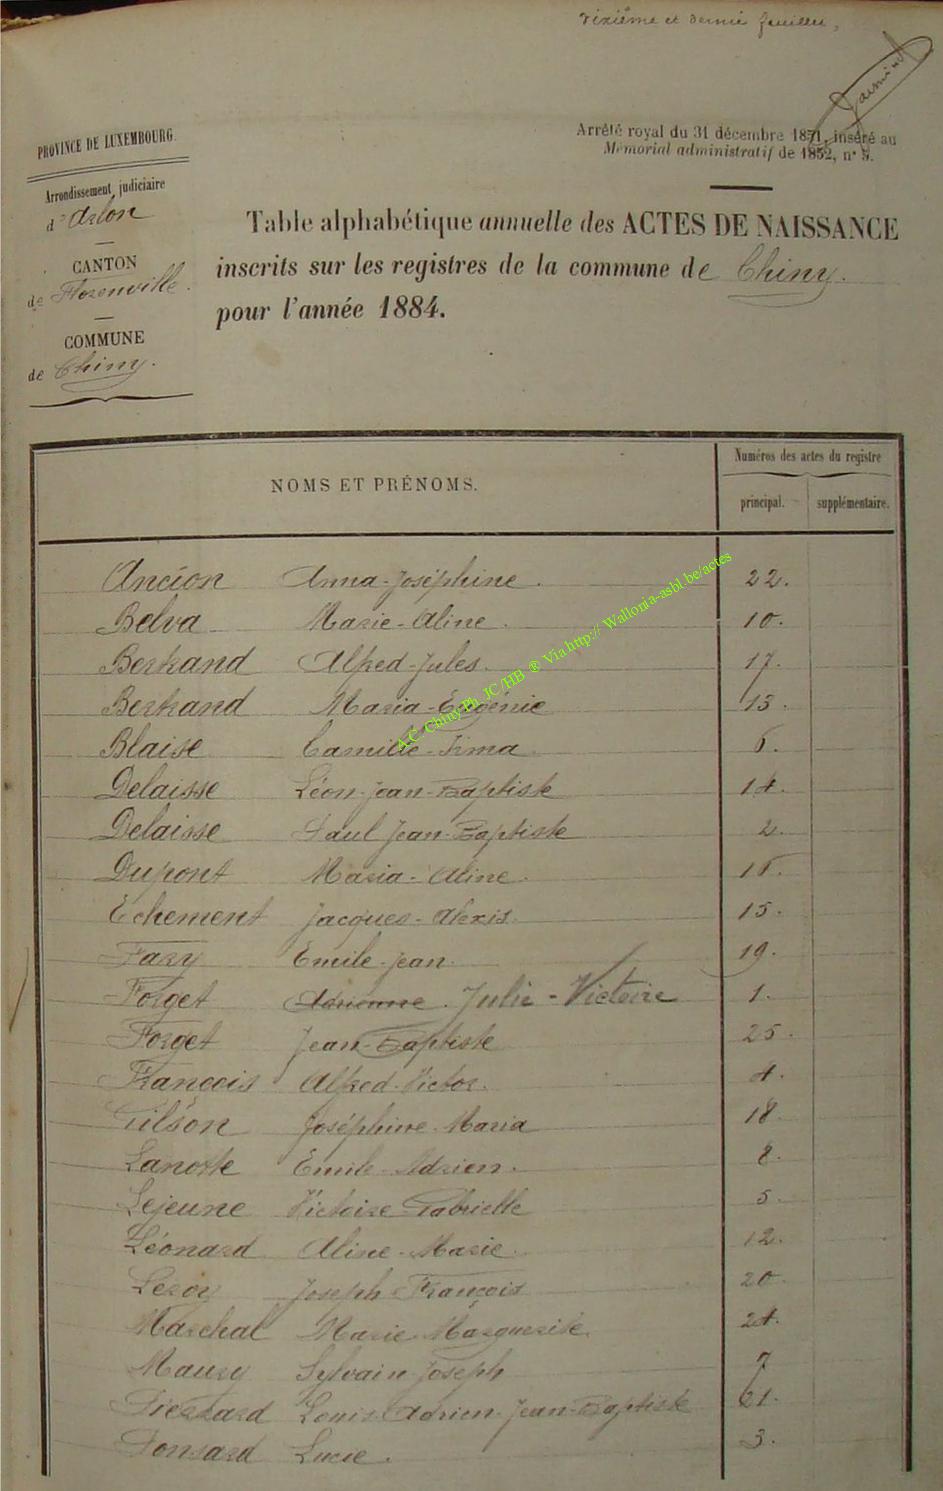 Dixième et dernié feuillet,
Arrêté royal du 31 décembre 1851, inséré au
Mémorial administratif de 1852, nº 5.
PROVINCE DE LUXEMBOURG.
Arrondissement judiciaire
d'Arlon
CANTON
de Florenville.
COMMUNE
de Chiny.
Table alphabétique annuelle des ACTES DE NAISSANCE
inscrits sur les registres de la commune de Chiny.
pour l'année 1884.
NOMS ET PRÉNOMS.
Numéros des actes du registre
principal. supplémentaire.
Ancion Anna-Joséphine. 22.
Belva Marie-Aline. 10.
Bertrand Alfred-Jules. 17.
Bertrand Maria-Eugénie 13.
Blaise Camille-Firma 6.
Delaisse Léon-Jean-Baptiste 14.
Delaisse Paul Jean-Baptiste 2.
Dupont Maria-Aline. 16
Echement Jacques-Alexis. 15.
Fary Emile-Jean. 19.
Forget Adrienne. Julie-Victoire 1.
Forget Jean-Baptiste 25.
François Alfred-Victor. 4.
Gilson Joséphine-Maria 18
Lanotte Emile-Adrien. 8.
Lejeune Victoire Gabrielle 5.
Léonard Aline-Marie. 12.
Leroy Joseph-François 20.
Marchal Marie-Marguerite. 24.
Maury Sylvain-Joseph 7
Pierrard Louis-Adrien-Jean-Baptiste 21.
Ponsard Lucie. 3.
A.C. Chiny Ph. JC/HB ® Via http:// Wallonia-asbl.be/actes